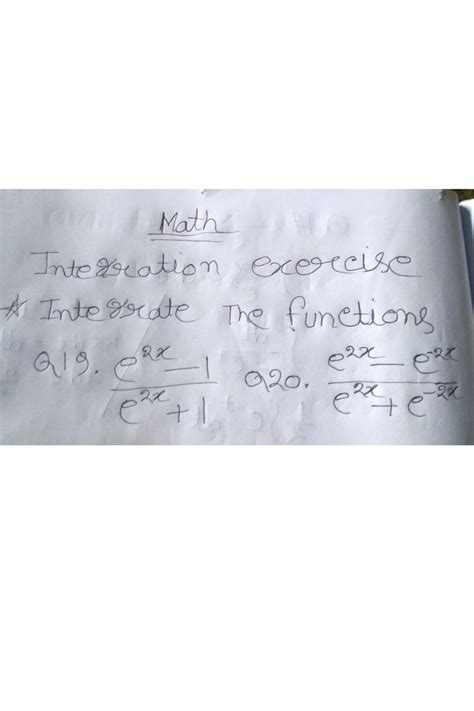 Math
Integration exercise
* Integrate The functions
Q19. (e^2x - 1)/(e^2x + 1) Q20. (e^2x - e^-2x)/(e^2x + e^-2x)